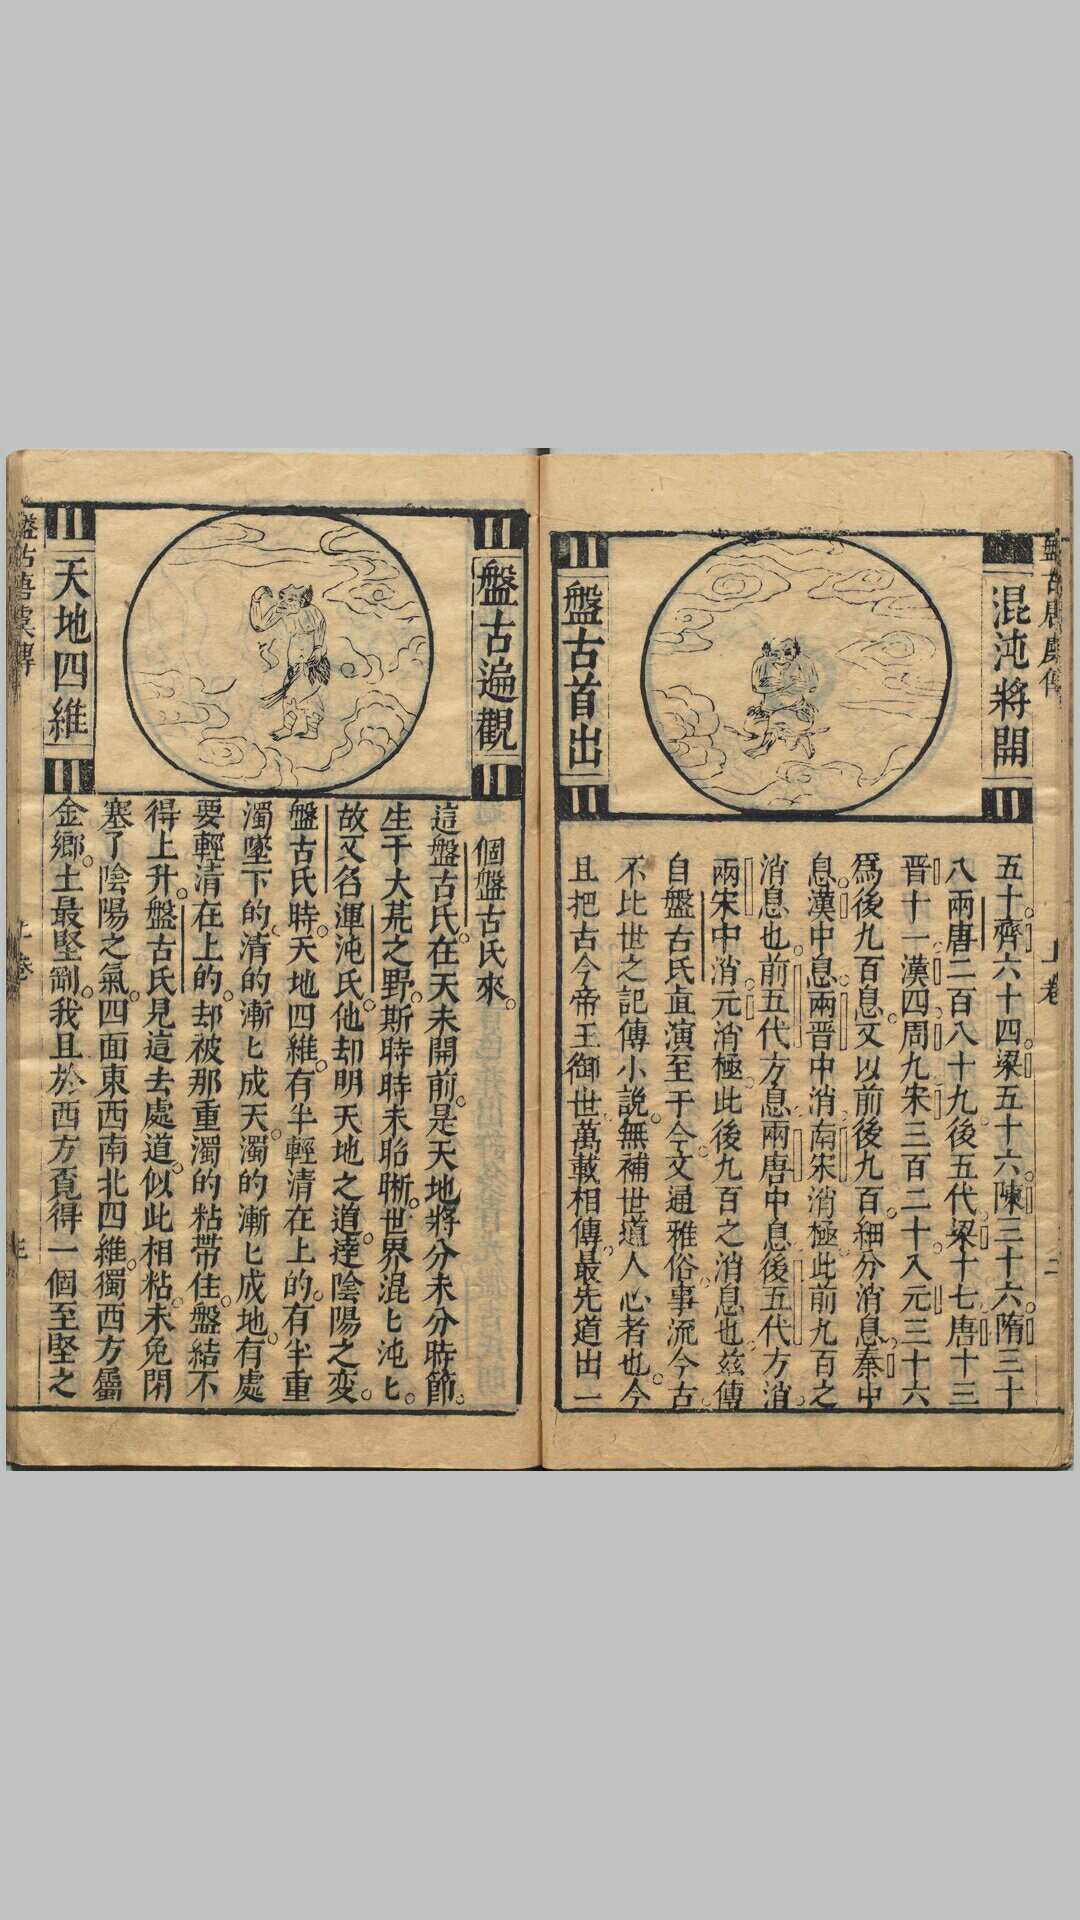 混沌將開
盤古首出
五十齊六十四梁五十六陳三十六隋三十
八兩唐二百八十九後五代梁十七唐十三
晋十一漢四周九宋三百二十入元三十六
爲後九百息又以前後九百細分消息秦中
息漢中息兩晋中消南宋消極此前九百之
消息也前五代方息兩唐中息後五代方消
兩宋中消元消極此後九百之消息也玆傳
自盤古氏直演至于今文通雅俗事流今古
不比世之記傳小說無補世道人心者也今
且把古今帝王御世萬載相傳最先道出一
上卷
二
盤古遍觀
天地四維
個盤古氏來
這盤古氏在天未開前是天地將分未分時節
生于大荒之野斯時時未昭晰世界混匕沌匕
故又名渾沌氏他却明天地之道達陰陽之変
盤古氏時天地四維有半輕清在上的有半重
濁墜下的清的漸匕成天濁的漸匕成地有處
要輕清在上的却被那重濁的粘帶住盤結不
得上升盤古氏見這去處道似此相粘未免閉
塞了陰陽之氣四面東西南北四維獨西方屬
金鄉土最堅剛我且於西方覔得一個至堅之
上卷
三